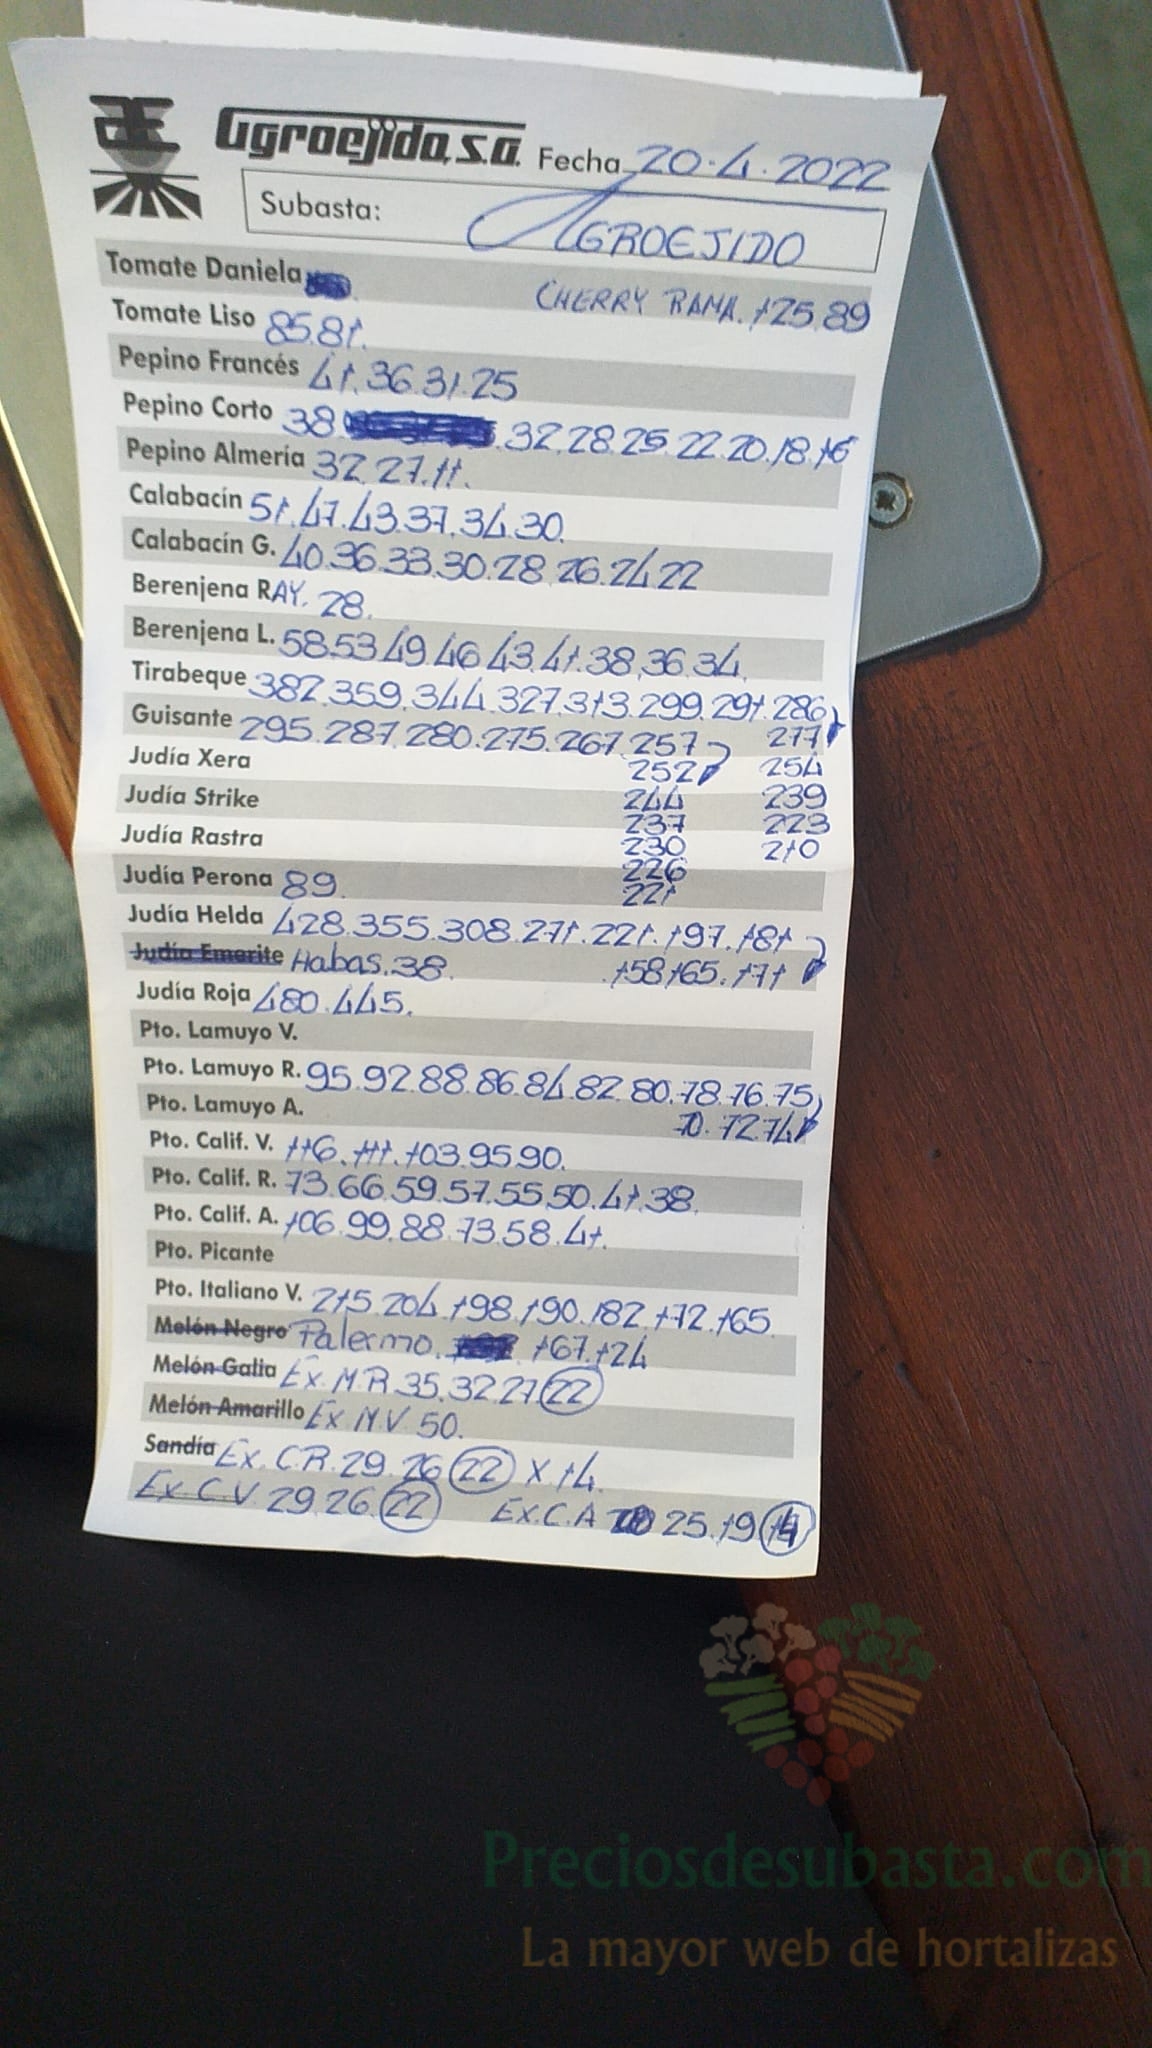 Agroejido, s.a. Fecha 20.4.2022
Subasta: AGROEJIDO
Tomate Daniela CHERRY RAMA. 125.89
Tomate Liso 85.81.
Pepino Francés 41.36.31.25
Pepino Corto 38. 32.28.25.22.20.18.16
Pepino Almería 32.27.11.
Calabacín 51.47.43.37.34.30.
Calabacín G. 40.36.33.30.28.26.24.22
Berenjena RAY. 28.
Berenjena L. 58.53.49.46.43.41.38.36.34.
Tirabeque 382.359.344.327.313.299.291.286
Guisante 295.287.280.275.267.257 277
Judía Xera 252 254
Judía Strike 244 239
237 223
Judía Rastra 230 210
226
Judía Perona 89. 221
Judía Helda 428.355.308.271.221.197.181
Judía Emerite Habas.38. 158.165.171
Judía Roja 480.445.
Pto. Lamuyo V.
Pto. Lamuyo R. 95.92.88.86.84.82.80.78.76.75
Pto. Lamuyo A. 70.72.74
Pto. Calif. V. 116.111.103.95.90.
Pto. Calif. R. 73.66.59.57.55.50.41.38.
Pto. Calif. A. 106.99.88.73.58.41.
Pto. Picante
Pto. Italiano V. 215.204.198.190.182.172.165
Melón Negro Palermo. 167.124
Melón Galia Ex.M.R.35.32.27.22
Melón Amarillo Ex M.V. 50.
Sandía Ex.C.R.29.26 22 X 14.
Ex.C.V 29.26.22 Ex.C.A 25.19
Preciosdesubasta.com
La mayor web de hortalizas